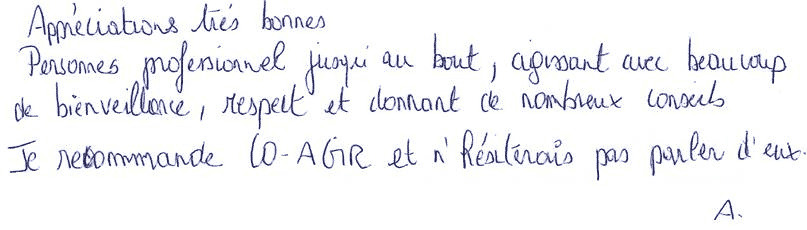 Appréciations très bonnes
Personnes professionnel jusqu'au bout, agissant avec beaucoup
de bienveillance, respect et donnant de nombreux conseils
Je recommande CO-AGIR et n'hésiterais pas parler d'eux.
A.